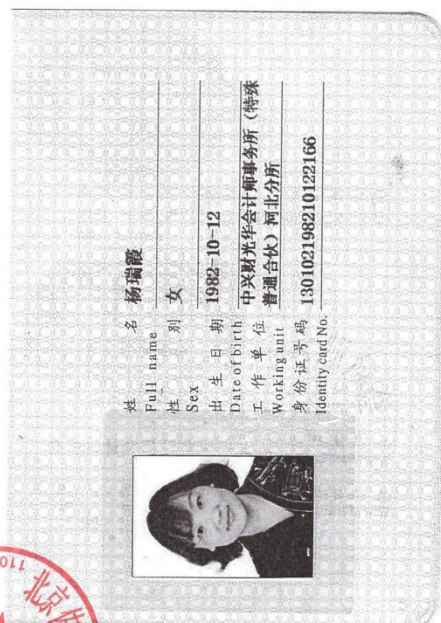 姓 名 杨瑞霞
Full name
性 别 女
Sex
出 生 日 期 1982-10-12
Date of birth
工 作 单 位 中兴财光华会计师事务所（特殊
Working unit 普通合伙）河北分所
身 份 证 号 码 130102198210122166
Identity card No.
北京
110